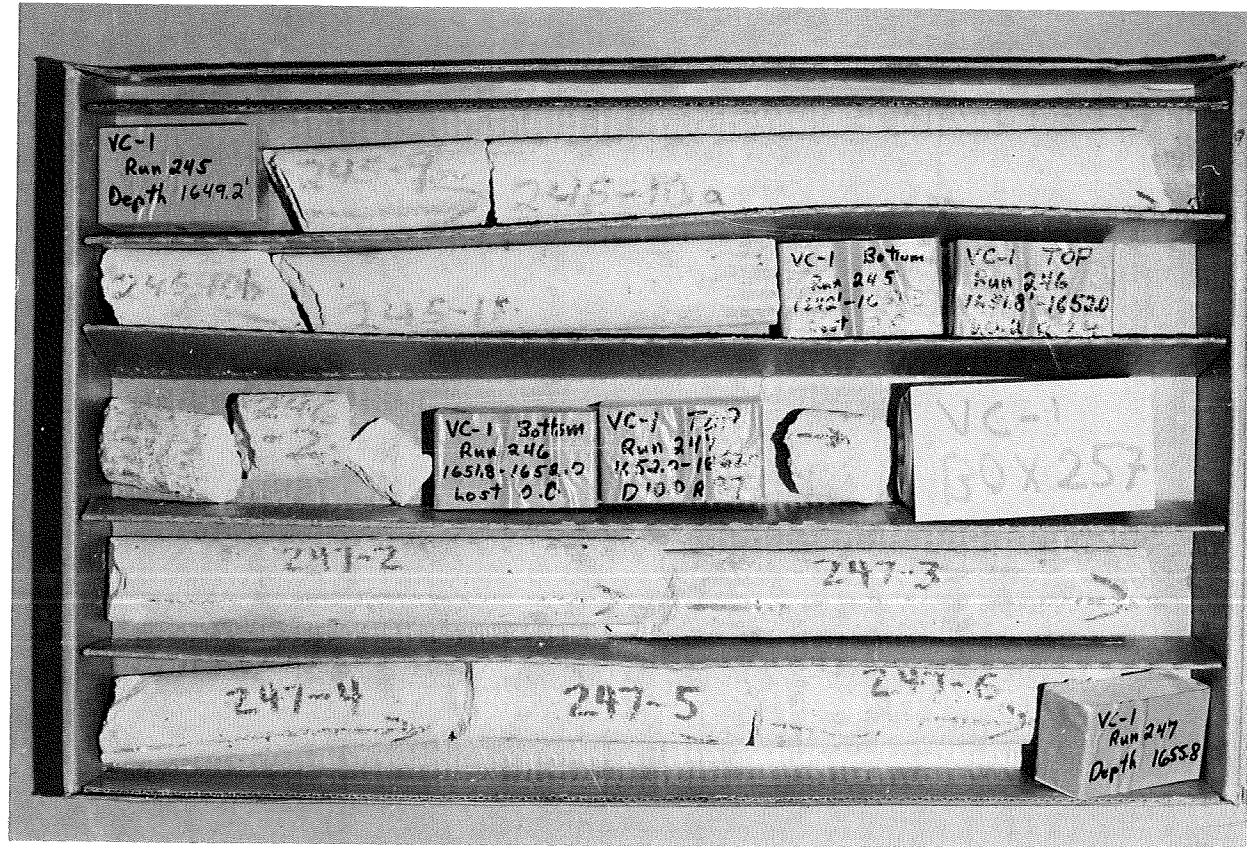 VC-1
Run 245
Depth 1649.2'
245-9
245-10a
245-10b
245-15
VC-1 Bottum
Run 245
Lost
VC-1 TOP
Run 246
1651.8'-1652.0
246
-2
VC-1 Bottum
Run 246
1651.8-1652.0
Lost 0.C.
VC-1 TOP
Run 247
1652.0-
VC-1
BOX 257
247-2
247-3
247-4
247-5
247-6
VC-1
Run 247
Depth 1655.8